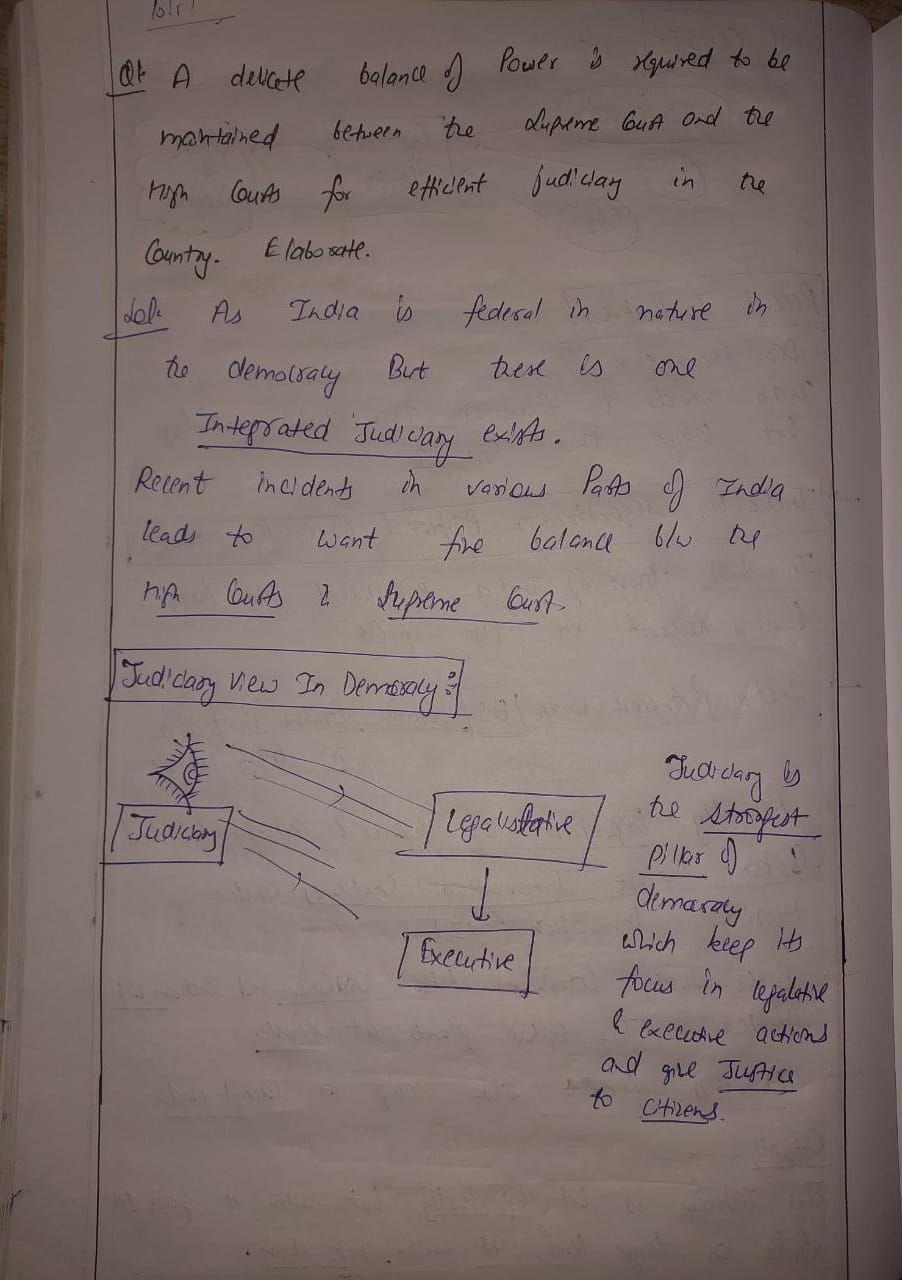 Q1. A delicate balance of Power is required to be
maintained between the Supreme Court and the
High Courts for efficient judiciary in the
Country. Elaborate.
Sol. As India is federal in nature in
the democracy But there is one
Integrated Judiciary exists.
Recent incidents in various Parts of India
leads to want fine balance b/w the
High Courts & Supreme Court.
Judiciary View In Democracy:
Judiciary
Legalistative
Executive
Judiciary is
the strongest
pillar of
democracy
which keep its
focus in legalative
& executive actions
and give Justice
to citizens.